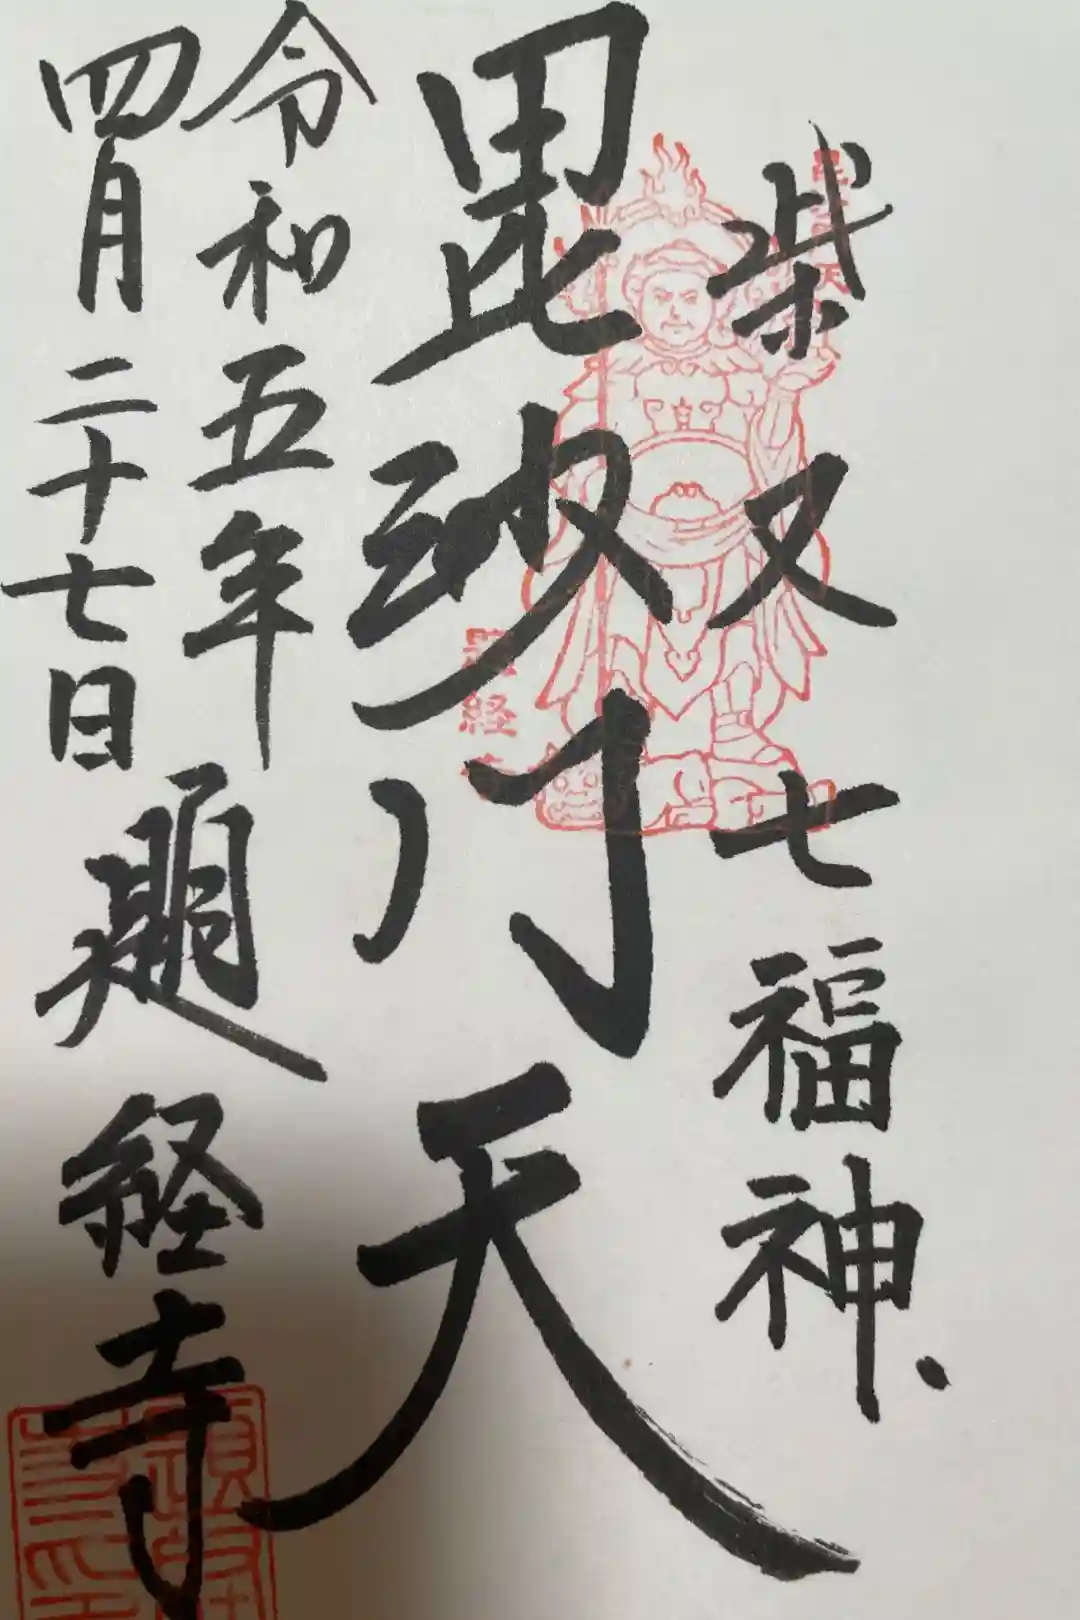 柴又七福神
毘沙门天
令和五年
四月二十七日
題経寺